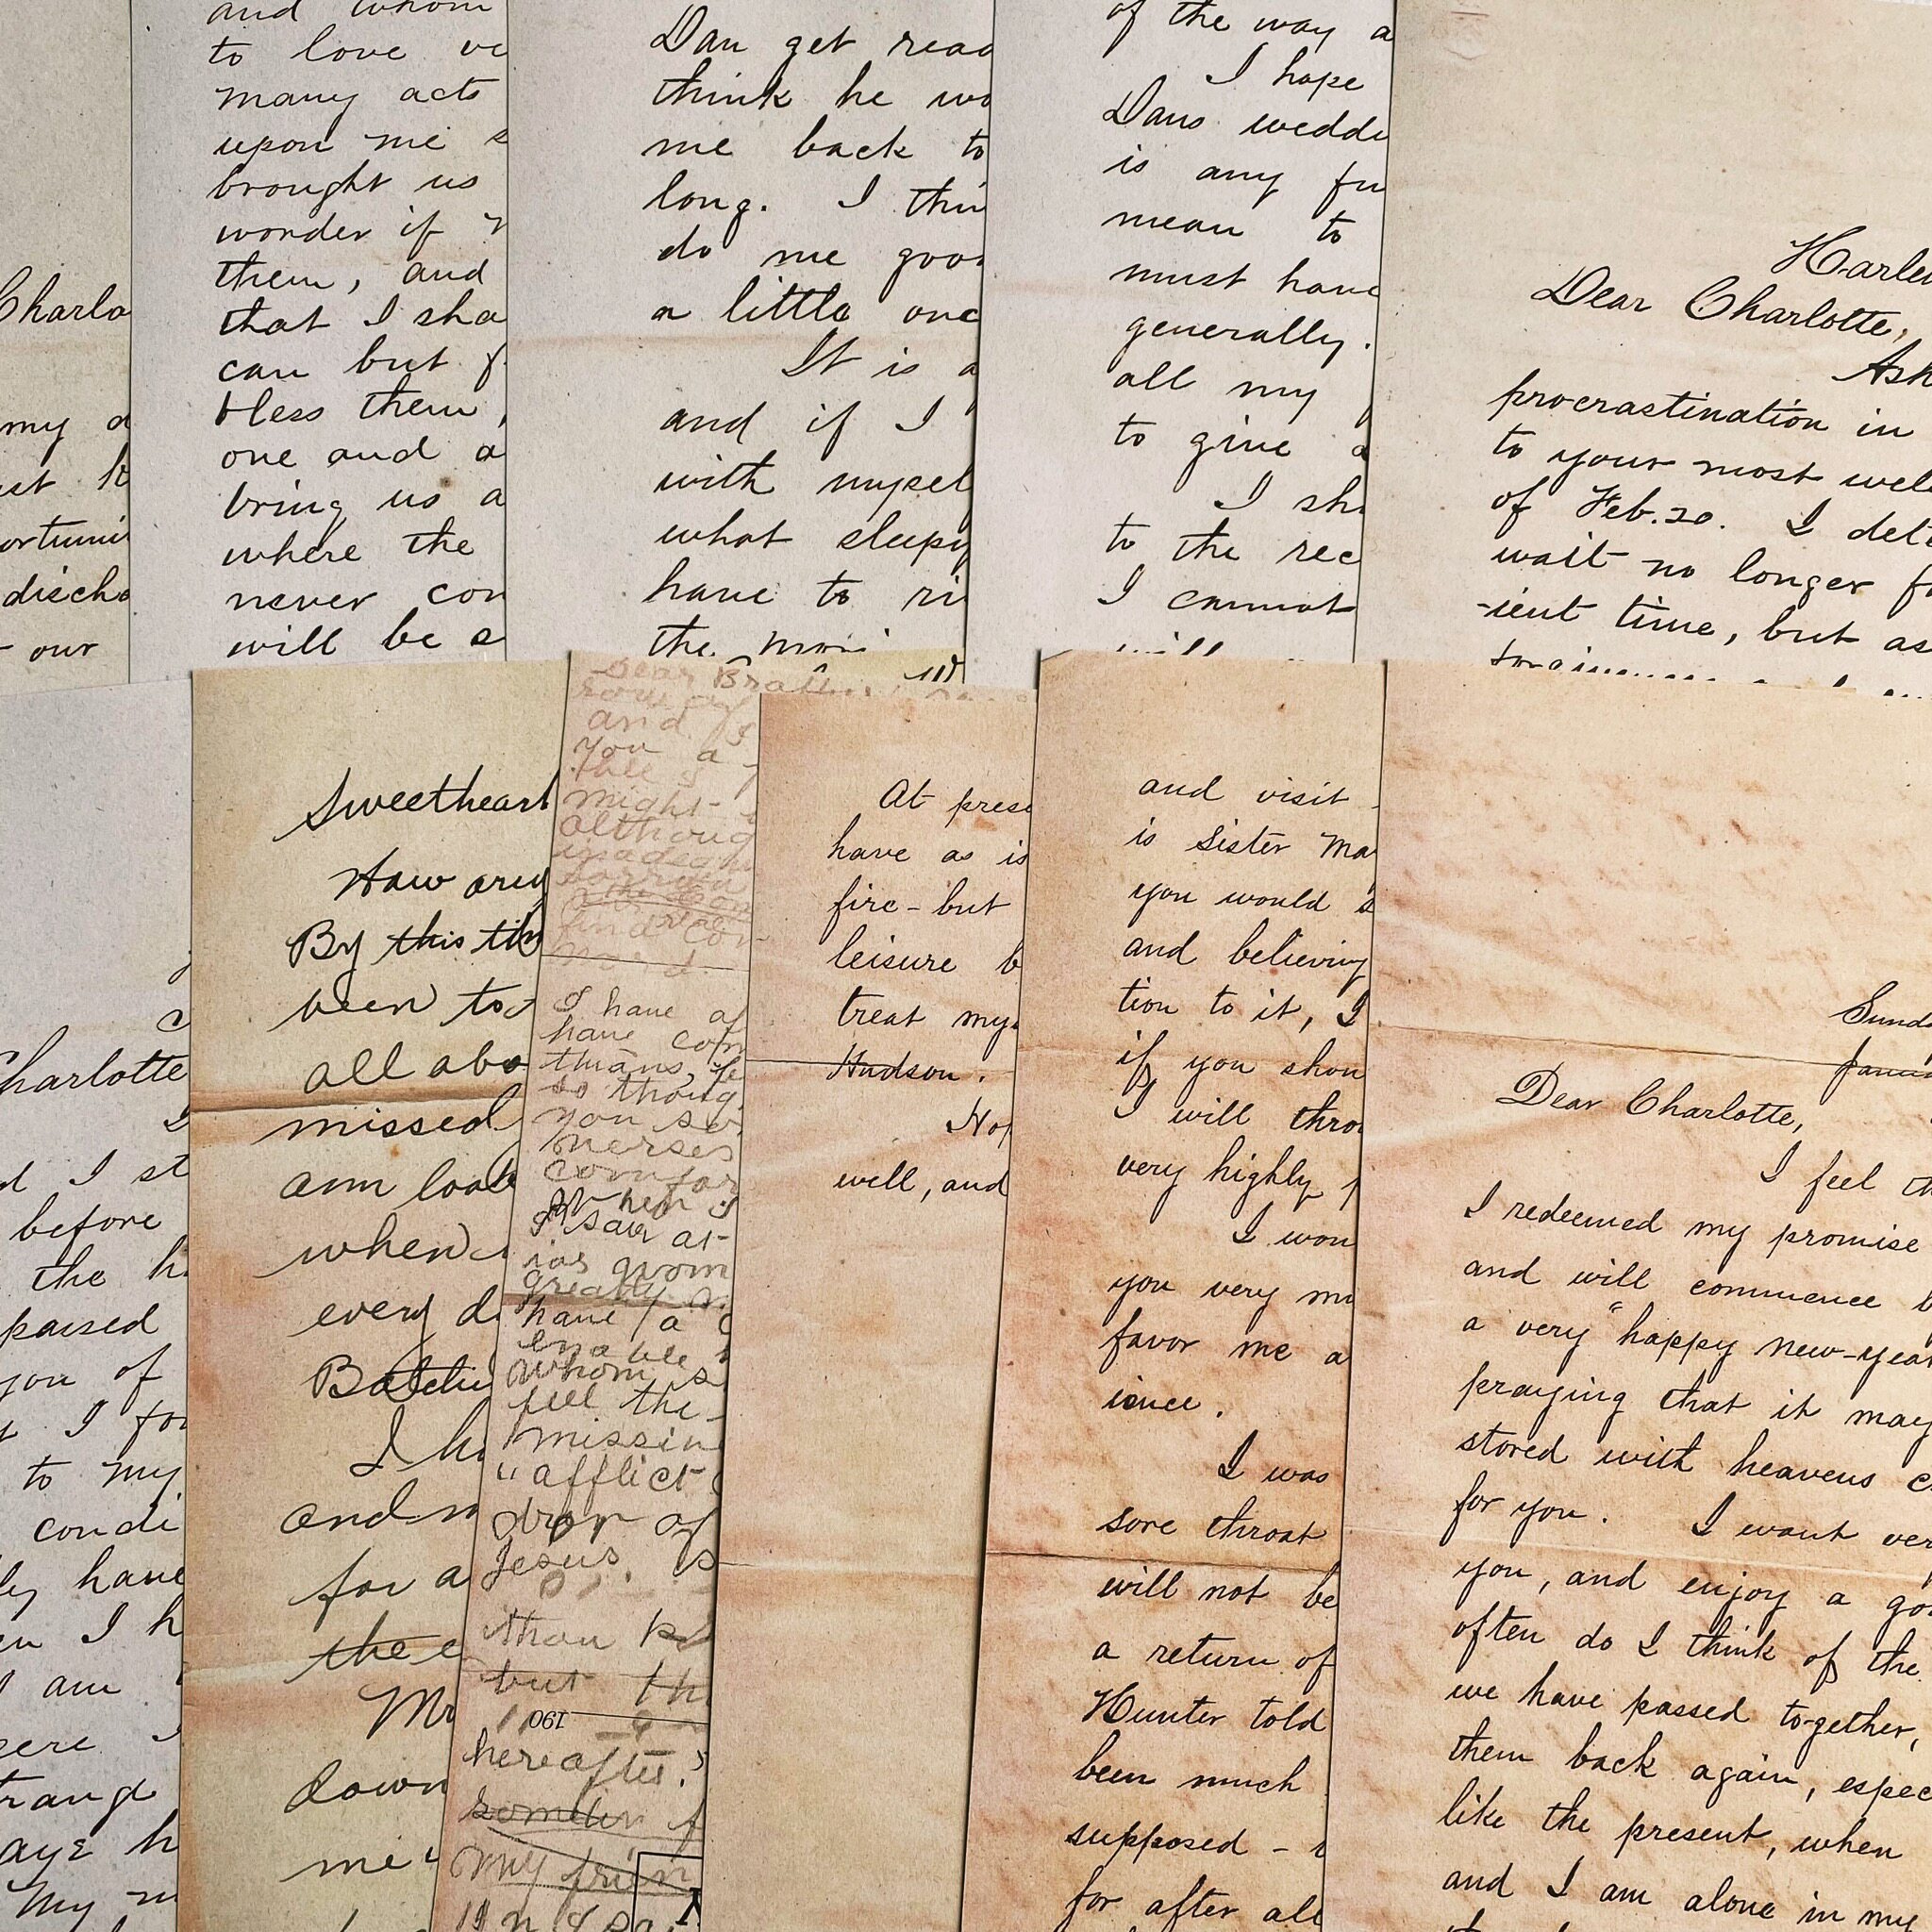 Charlo
my
our
and whom
to love
many acts
upon me
brought us
wonder if
them, and
that I sha
can but
bless them,
one and a
bring us a
where the
never con
will be s
Dan get read
think he wo
me back to
long. I thin
do me goo
a little one
It is a
and if I
with mysel
what sleepy
have to ri
the
of the way a
I hope
Dans weddi
is any fu
mean to
must have
generally.
all my
to give a
I sh
to the rec
I cannot
will
Harle
Dear Charlotte,
Ask
procrastination in
to your most wel
of Feb. 20. I dete
wait no longer fo
-ient time, but as
Charlotte
I
d I st
before
the h
passed
you of
I for
to my
condi
ly have
en I h
I am
here
trang
aye h
My
Sweetheart
How are
By this tim
been to
all abo
missed
am look
when
every d
I h
and
for a
the
Mr
down
me
Dear
and I
you a
might
althoug
I have of
have com
thians,
so thoug
you se
verses
comfor
When I
I saw at
greatly
have a
enable
whom
fill the
missin
"afflict
drop of
Jesus.
than
but th
190
hereafter.
my frien
At prese
have as is
fire - but
leisure b
treat my
Hudson.
No
well, and
and visit
is Sister Ma
you would s
and believing
tion to it, I
if you shou
I will thro
very highly
I won
you very mu
favor me a
ience.
I was
sore throat
will not be
a return of
Hunter told
been much
supposed -
for after all
Sund
Janua
Dear Charlotte,
I feel th
I redeemed my promise
and will commence b
a very "happy new-year
praying that it may
stored with heavens c
for you. I want ver
you, and enjoy a go
often do I think of the
we have passed to-gether,
them back again, espec
like the present, when
and I am alone in my